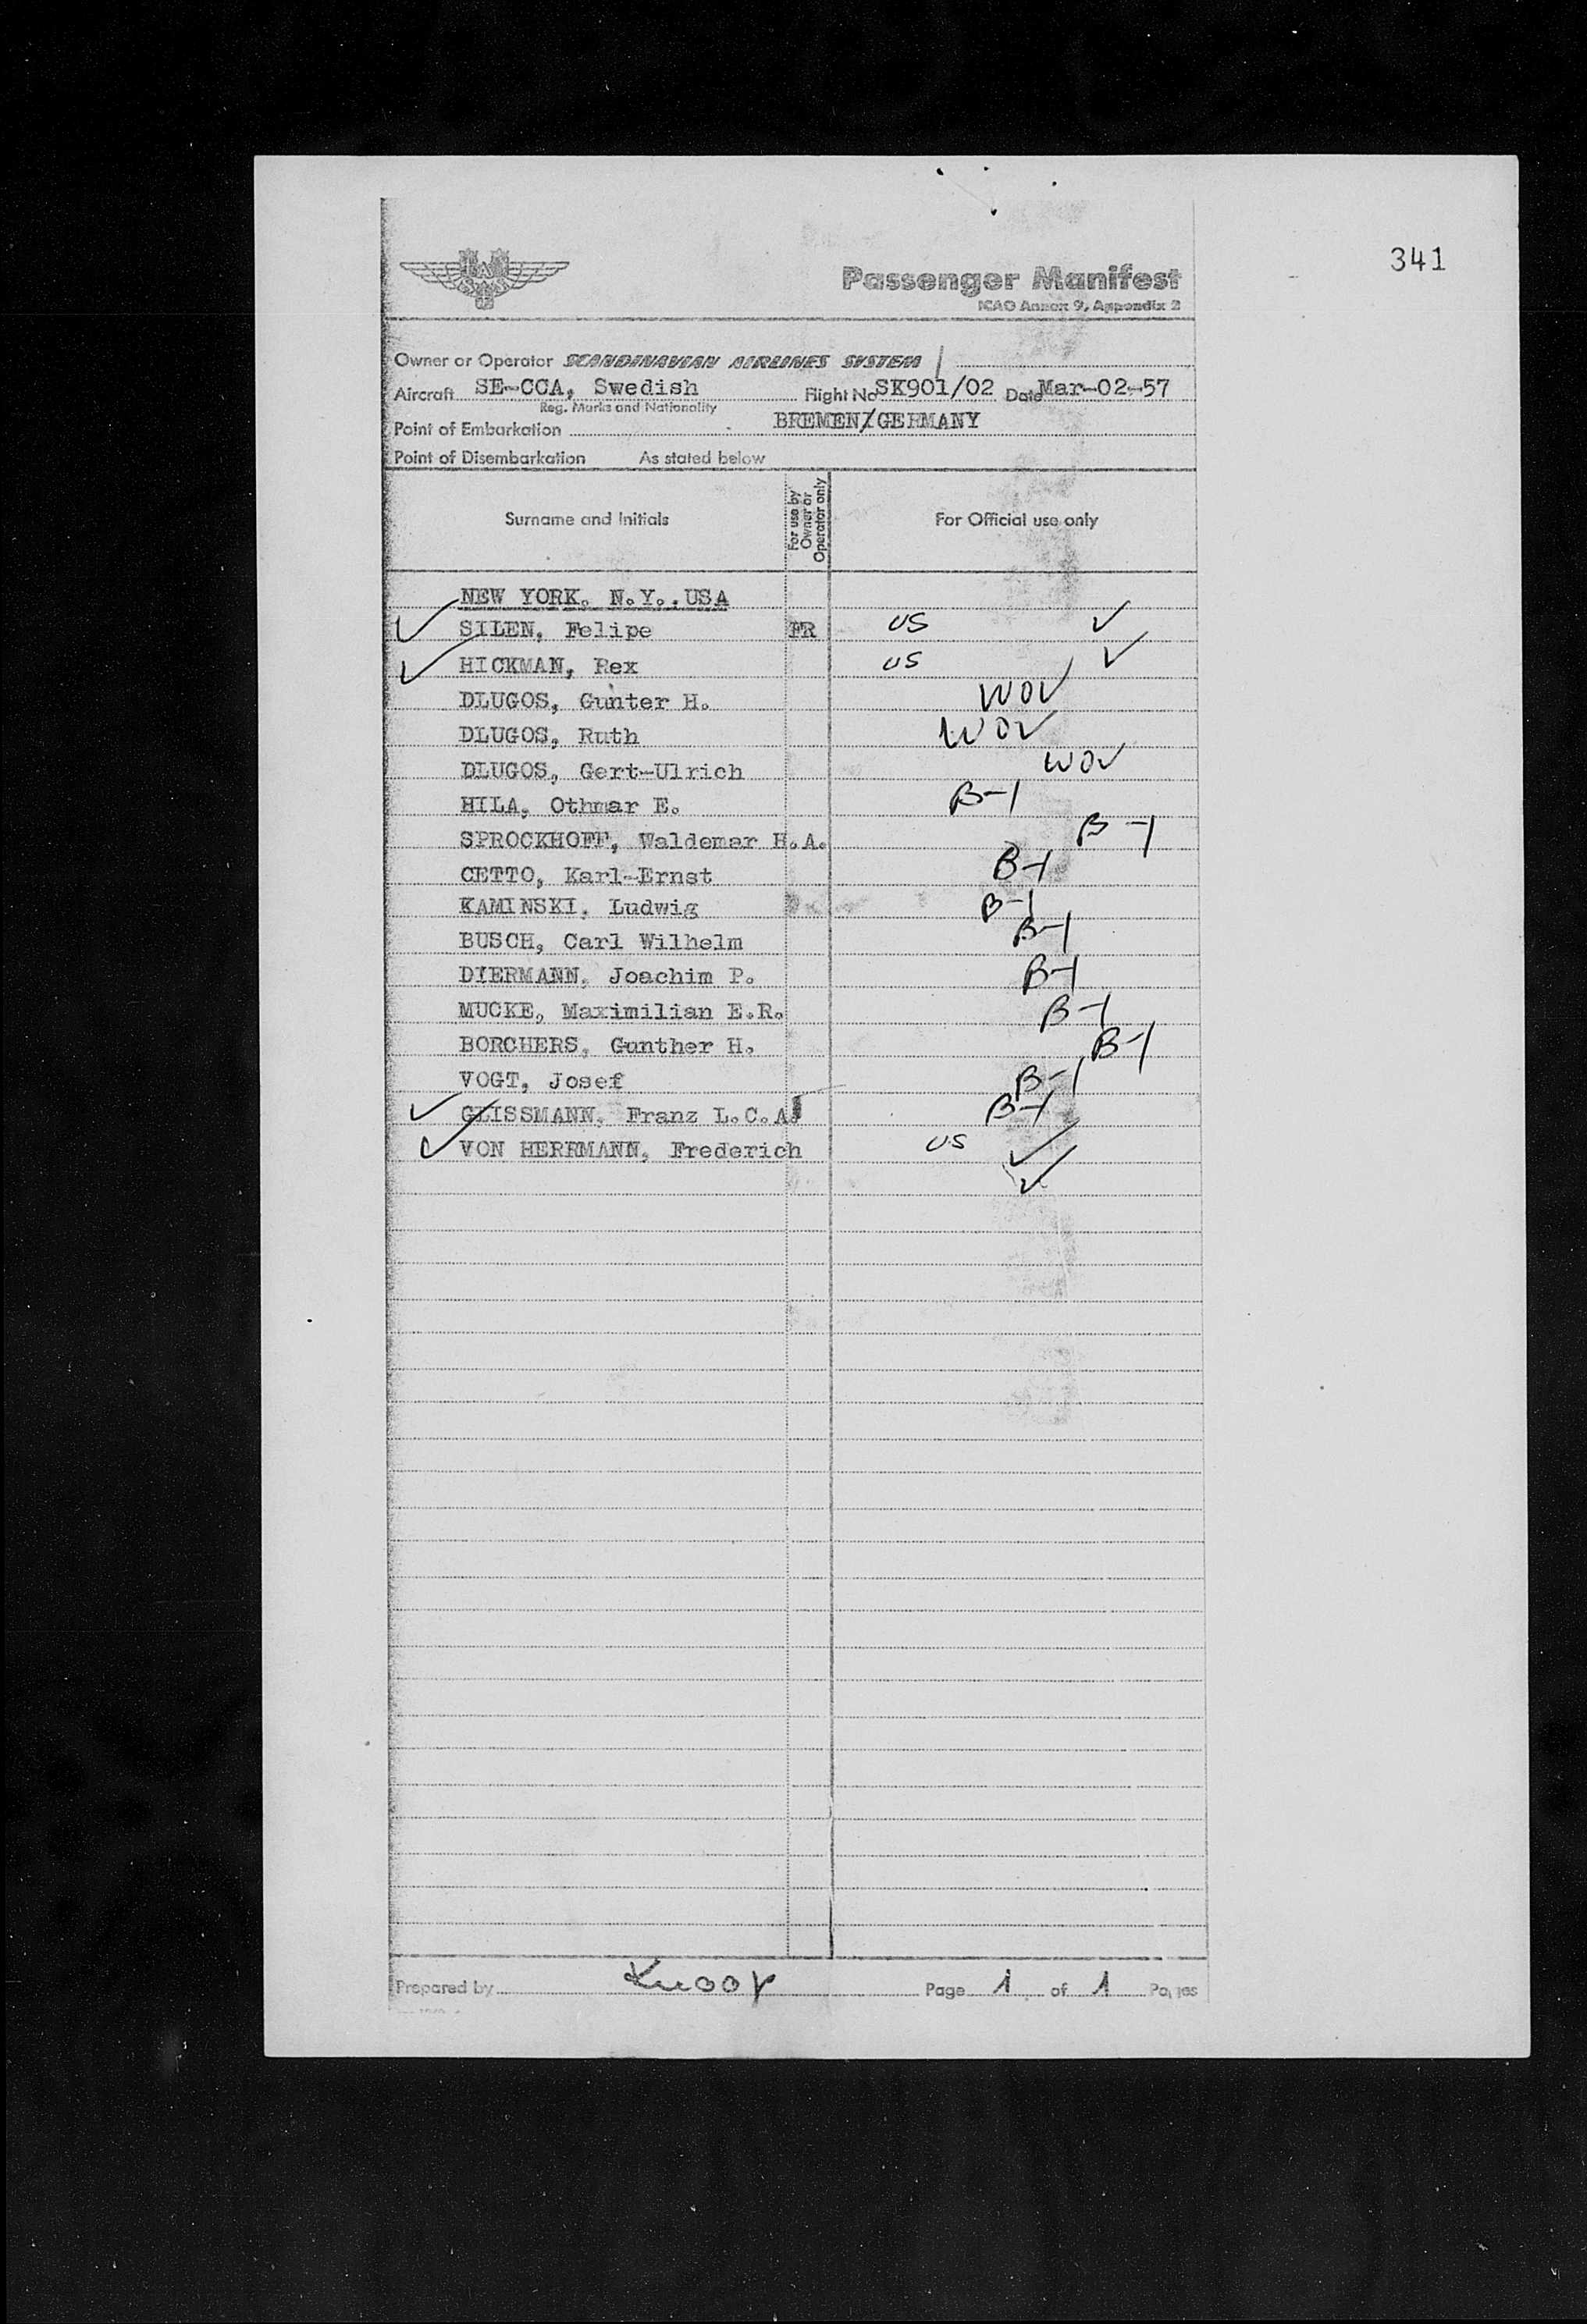 341
SAS
Passenger Manifest
ICAO Annex 9, Appendix 2
Owner or Operator SCANDINAVIAN AIRLINES SYSTEM
Aircraft SE-CCA, Swedish Flight No SK901/02 Date Mar-02-57
Reg. Marks and Nationality
Point of Embarkation BREMEN/GERMANY
Point of Disembarkation As stated below
Surname and Initials For use by Owner or Operator only For Official use only
NEW YORK. N.Y..USA
✓ SILEN, Felipe FR US ✓
✓ HICKMAN, Rex US ✓
DLUGOS, Gunter H. WOV
DLUGOS, Ruth WOV
DLUGOS, Gert-Ulrich WOV
HILA, Othmar E. B-1
SPROCKHOFF, Waldemar H.A. B-1
CETTO, Karl-Ernst B-1
KAMINSKI, Ludwig B-1
BUSCH, Carl Wilhelm B-1
DIERMANN, Joachim P. B-1
MUCKE, Maximilian E.R. B-1
BORCHERS, Gunther H. B-1
VOGT, Josef B-1
✓ GLISSMANN, Franz L.C.A. B-1
✓ VON HERRMANN, Frederich US ✓
✓
Prepared by Knoop Page 1 of 1 Pages